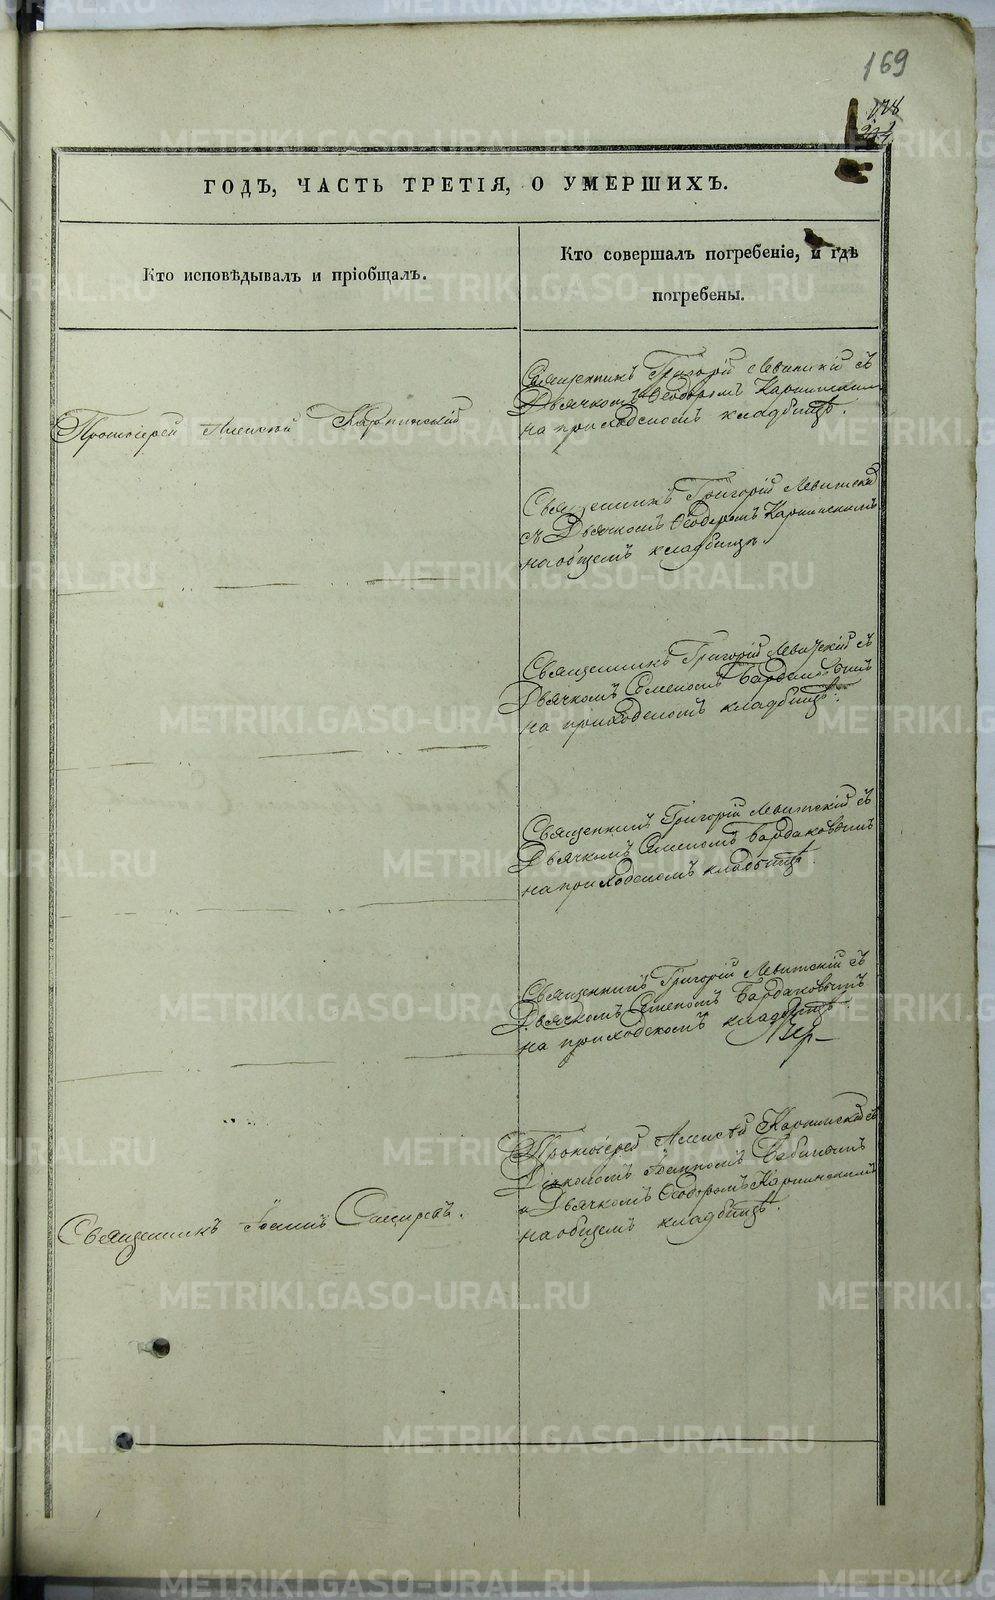 169
ГОДЪ, ЧАСТЬ ТРЕТІЯ, О УМЕРШИХЪ.
Кто исповѣдывалъ и пріобщалъ.
Кто совершалъ погребеніе, и гдѣ
погребены.
Протоіерей Алексѣй Карпинскій
Священникъ Григорій Левитскій съ
Дьячкомъ Ѳеодоромъ Карпинскимъ
на приходскомъ кладбищѣ.
Священникъ Григорій Левитскій
съ Дьячкомъ Ѳеодоромъ Карпинскимъ
на общемъ кладбищѣ.
Священникъ Григорій Левитскій съ
Дьячкомъ Семеномъ Бардаковымъ
на приходскомъ кладбищѣ.
Священникъ Григорій Левитскій съ
Дьячкомъ Семеномъ Бардаковымъ
на приходскомъ кладбищѣ.
Священникъ Григорій Левитскій съ
Дьячкомъ Семеномъ Бардаковымъ
на приходскомъ кладбищѣ
Священникъ Іоаннъ
Протоіерей Алексѣй Карпинскій съ
Діакономъ Іоанномъ
и Дьячкомъ Ѳеодоромъ Карпинскимъ
на общемъ кладбищѣ.
METRIKI.GASO-URAL.RU